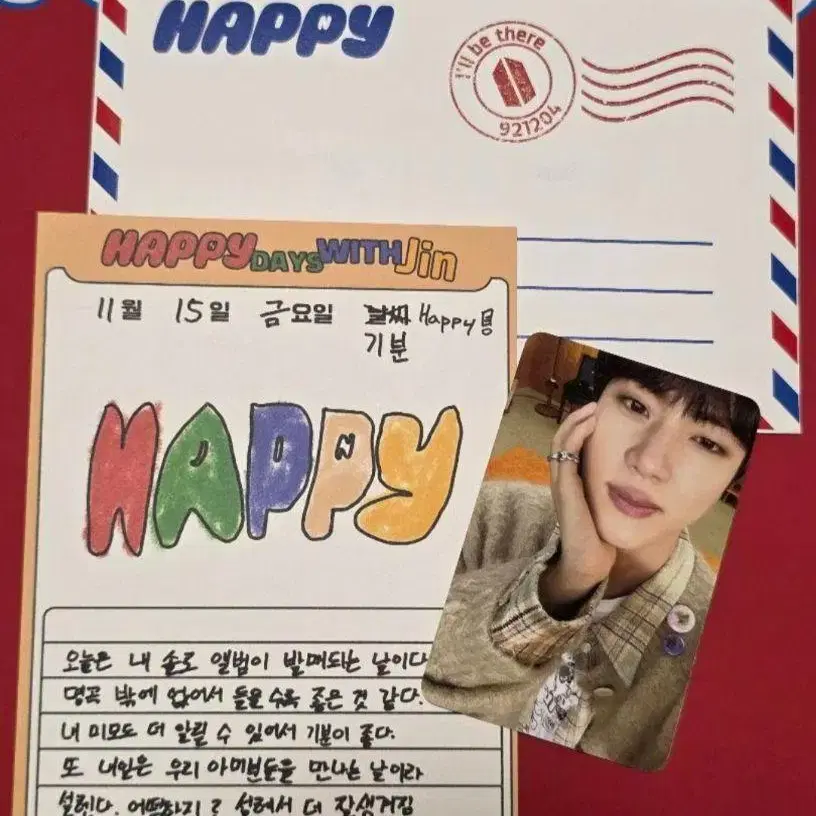 HAPPY
I'll be there
921204
HAPPY DAYS WITH Jin
11월 15일 금요일 Happy
기분
HAPPY
오늘은 내 솔로 앨범이 발매되는 날이다
명곡 밖에 없어서 들을수록 좋은 것 같다.
내 미모도 더 알릴 수 있어서 기분이 좋다.
또 내일은 우리 아미분들을 만나는 날이라
설렌다. 어떡하지? 설레서 더 잘생겨짐